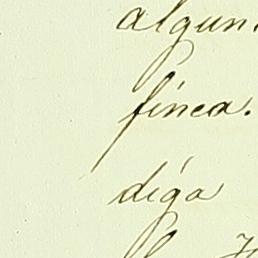 algun.
finca.
diga